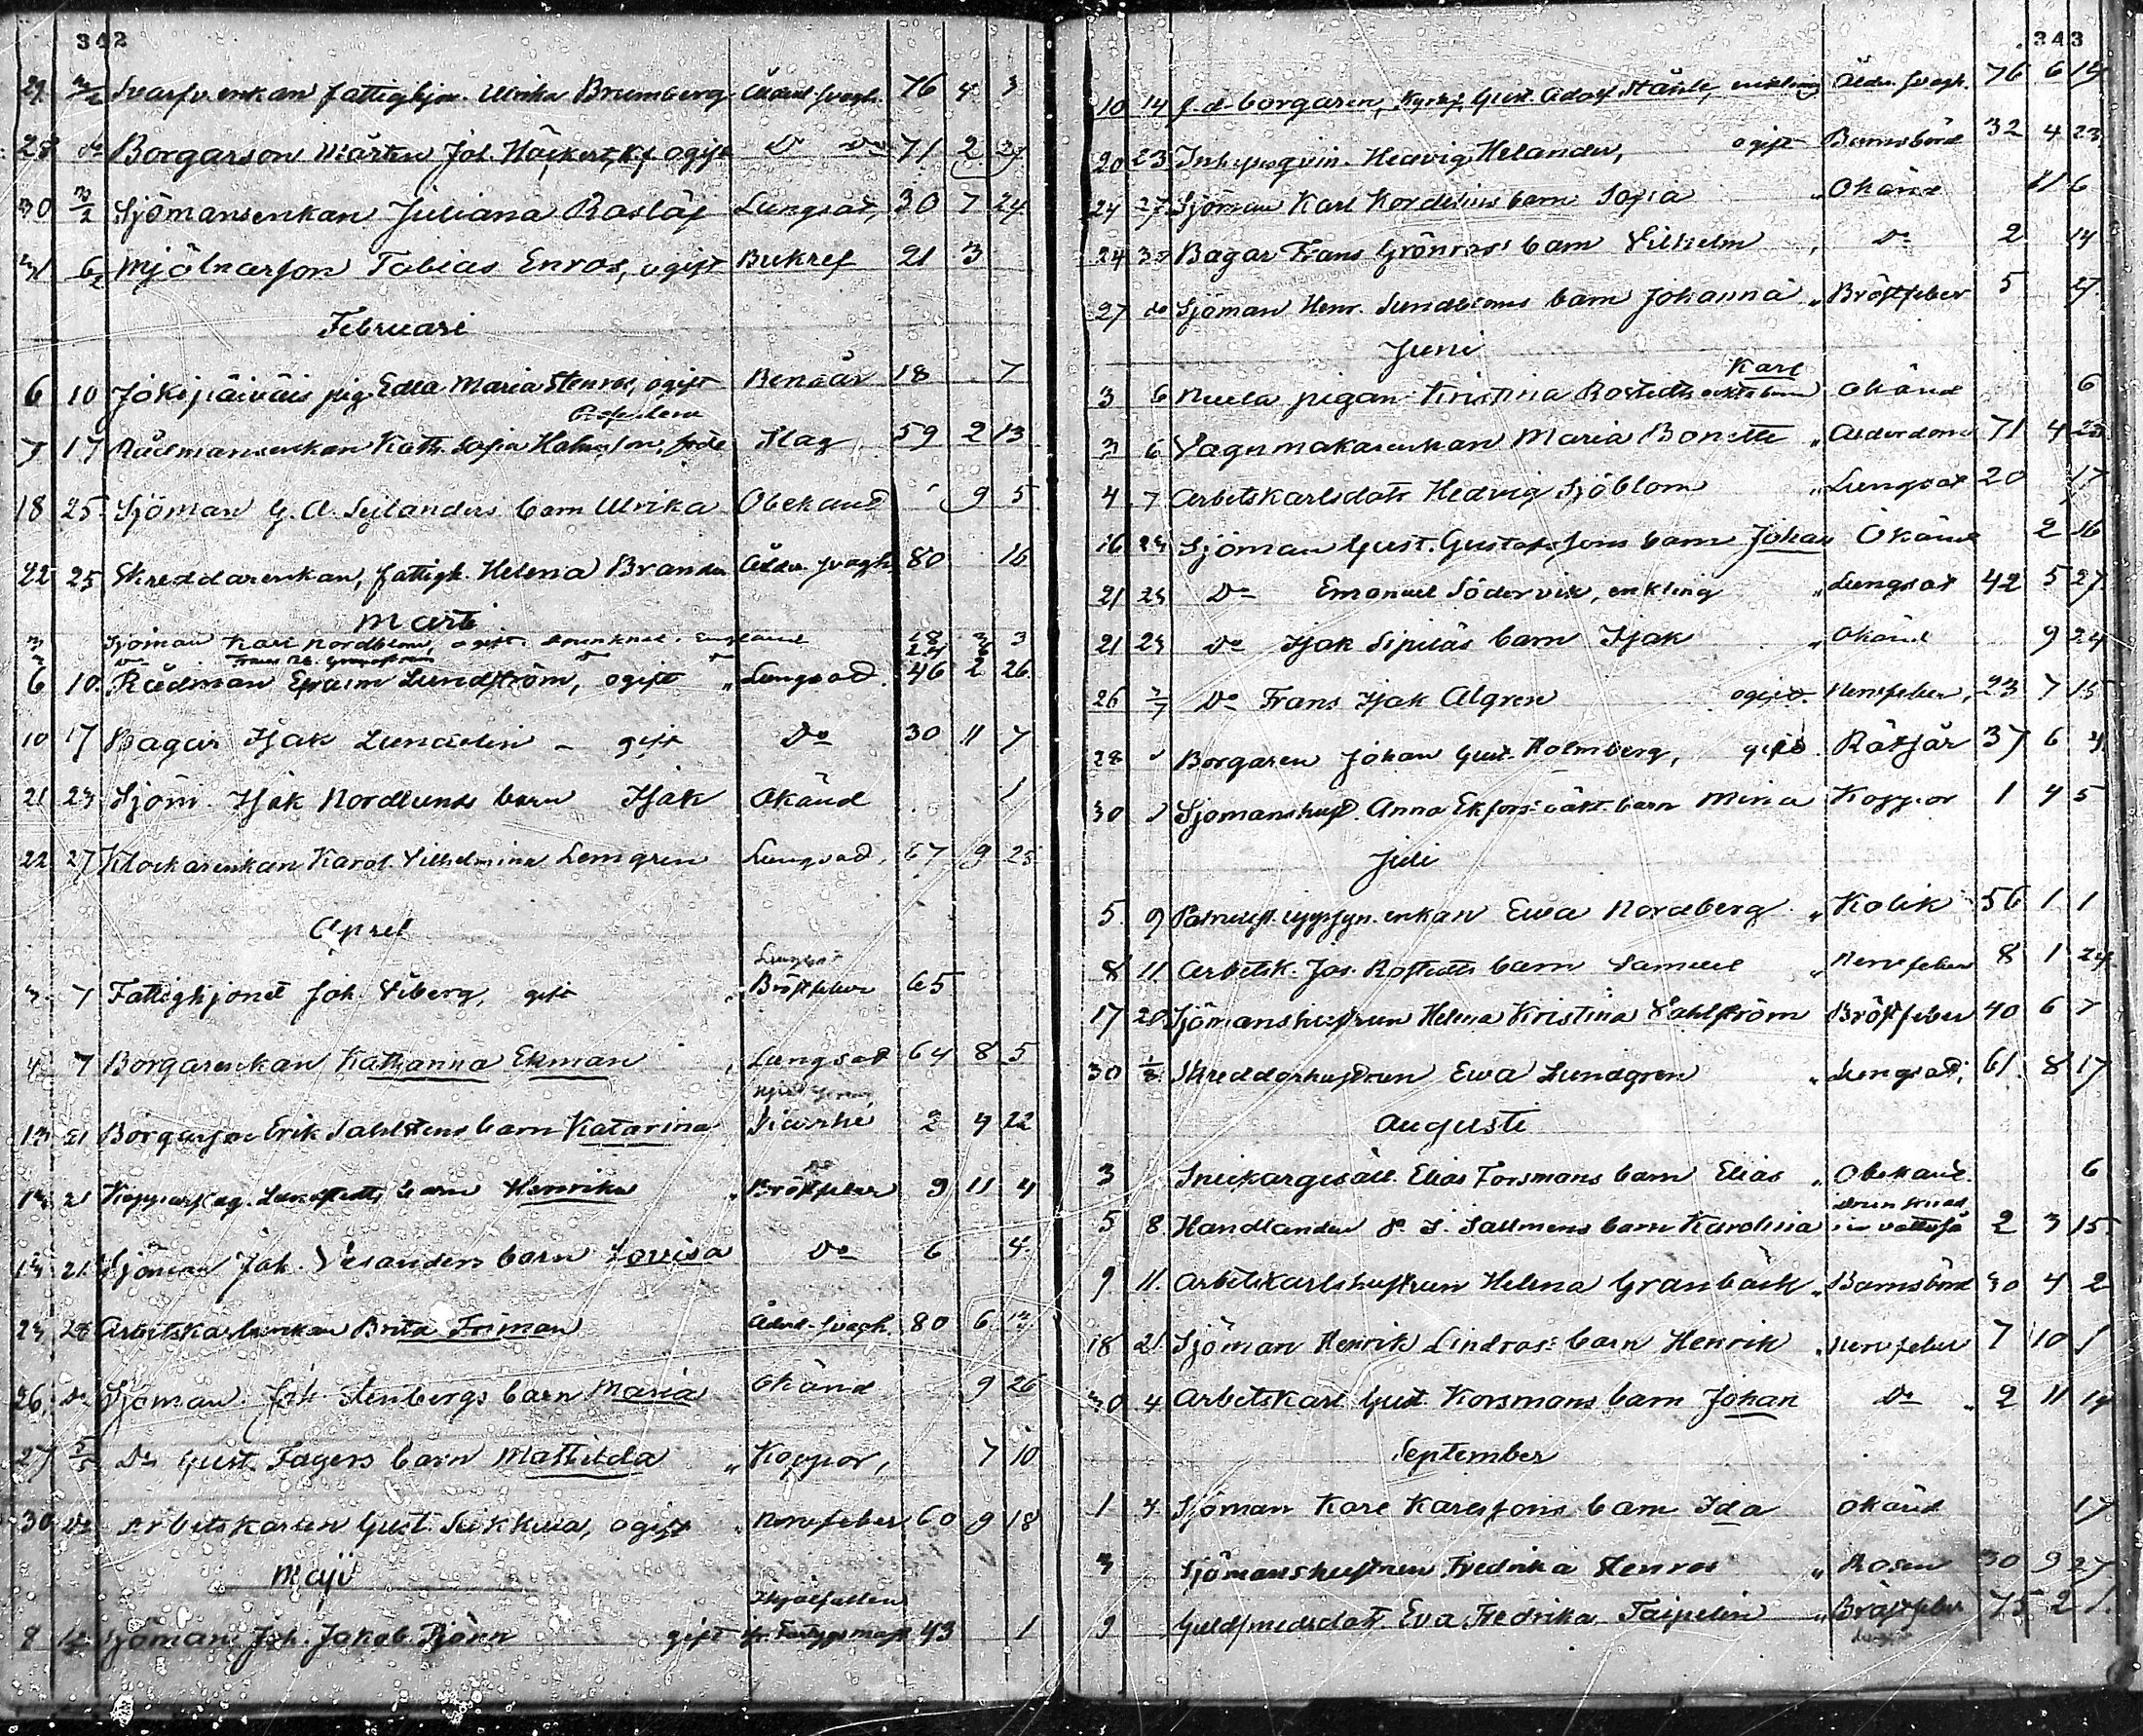 342
29 Svarfv. enkan fattighjon. Ulrika Brumberg Ålderd. svagh. 76 4 3
28 do Borgarson Mårten Joh. Häckert, ogift Do Do 71 2 27
30 3/2 Sjömansenkan Juliana Roslöf Lungsot, 30 7 24
31 6/2 Mjölnarson Tobias Enros, ogift Bukref 21 3
Februari
6 10 Jokipäiväis pig. Edla Maria Stenros, ogift Bensår 18 7
7 17 Rådmansenkan Kath. Sofia född Slag 59 2 13
18 25 Sjöman G. A. Sejlanders barn Ulrika Obekand 9 5
22 25 Skreddarenkan, fattigh. Helena Brander Ålder. svagh. 80 16
Marti
3 Sjöman Karl Nordblom, ogift. drunknat. England 28 3 3
6 10 Rådman Efraim Lundström, ogift " Lungsot. 46 2 26
10 17 Bagar Isak Lundelin - gift Do 30 11 7
21 23 Sjöm. Isak Nordlunds barn Isak Okänd 1
22 27 Klockarenkan Karol. Vilhelmina Lemgren Lungsot, 67 9 23
April
3 7 Fattighjonet Joh. Viberg, gift " Bröstfeber 65
4 7 Borgarenkan Kathanna Ekman , Lungsot 64 8 5
13 21 Borgarson Erik Sahlstens barn Katarina Kikhosta 2 4 22
13 21 barn Henrika " Bröstfeber 9 11 4
13 21 Sjöman Joh. Vesanders barn Lovisa Do 6 4
23 28 Arbetskarlsenkan Brita Friman Ålderd. svagh. 80 6 13
26 Do Sjöman. Joh. Stenbergs barn Maria Okänd 9 26
27 5/5 Do Gust. Fagers barn Mathilda " Koppor, 7 10
30 Do Arbetskarlen Gust. ogift " Nervfeber 60 9 18
Maji
Ihjälfallen
9 Sjöman Joh. Jakob Björn gift fr. Fartygsmast 43 1
343
10 14 f. d. borgaren, Gust. Adolf Ståhle, enkling Ålder. svagh. 76 6 14
20 23 Inhyseqvin. Hedvig Helander, ogift Barnsbörd 32 4 23
24 27 Sjöman Karl Kordelins barn Sofia " Okänd 11 6
24 30 Bagar Frans Grönros' barn Vilhelm , Do 2 14
27 do Sjöman Henr. Sundbloms barn Johanna " Bröstfeber 5 27
Juni
Karl
3 6 pigan Kristina Rostedts oäkta barn Okänd 6
3 6 Vagnmakarenkan Maria Bonette " Ålderdom 71 4 23
4 7 Arbetskarlsdotr Hedvig Sjöblom " Lungsot 20 17
16 24 Sjöman Gust. Gustafssons barn Johan Okänd 2 16
21 24 Do Emanuel Södervik, enkling " Lungsot 42 5 27
21 24 Do Isak Sipiläs barn Isak " Okänd 9 24
26 2/7 Do Frans Isak Algren ogift. Nervfeber, 23 7 15
28 Borgaren Johan Gust. Holmberg, gift. Rötsår 37 6 4
30 Sjömanshust. Anna Ekfors' oäkt. barn Mina Koppor 1 4 5
Juli
5 9 enkan Ewa Nordberg " Kolik 56 1 1
8 11 Arbetsk. Jos. Rostedts barn Samuel " Nervfeber 8 1 24
17 20 Sjömanshustrun Helena Kristina Vahlström Bröstfeber 40 6 7
30 1/8 Skreddarhustrun Ewa Lundgren " Lungsot, 61 8 17
Augusti
3 Snickargesäll Elias Forsmans barn Elias " Obekand. 6
drunknad
5 8 Handlanden J. Sallmens barn Karolina i en 2 3 15
9 11 Arbetskarlshustrun Helena Granbäck " Barnsbörd 30 4 2
18 21 Sjöman Henrik Lindros' barn Henrik " Nervfeber 7 10 1
30 4 Arbetskarl Gust. Korsmans barn Johan Do " 2 11 14
September
1 4 Sjöman Karl Karlssons barn Ida Okänd 17
3 Sjömanshustrun Fredrika Stenros " Rosen 30 9 27
9 Guldsmedsdotr. Eva Fredrika Taipelin " Bröstfeber 75 2 1